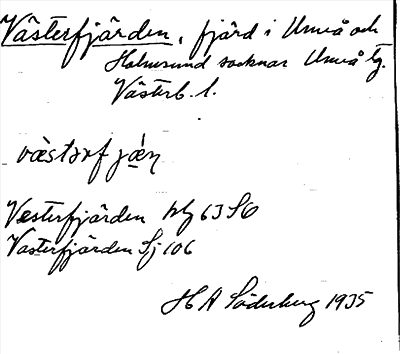 Västerfjärden, fjärd i Umeå och
Holmsund socknar Umeå tg.
Västerb. l.
västərfjä́ṇ
Vesterfjärden blg 63 SO
Västerfjärden Sj 106
H A Söderberg 1935